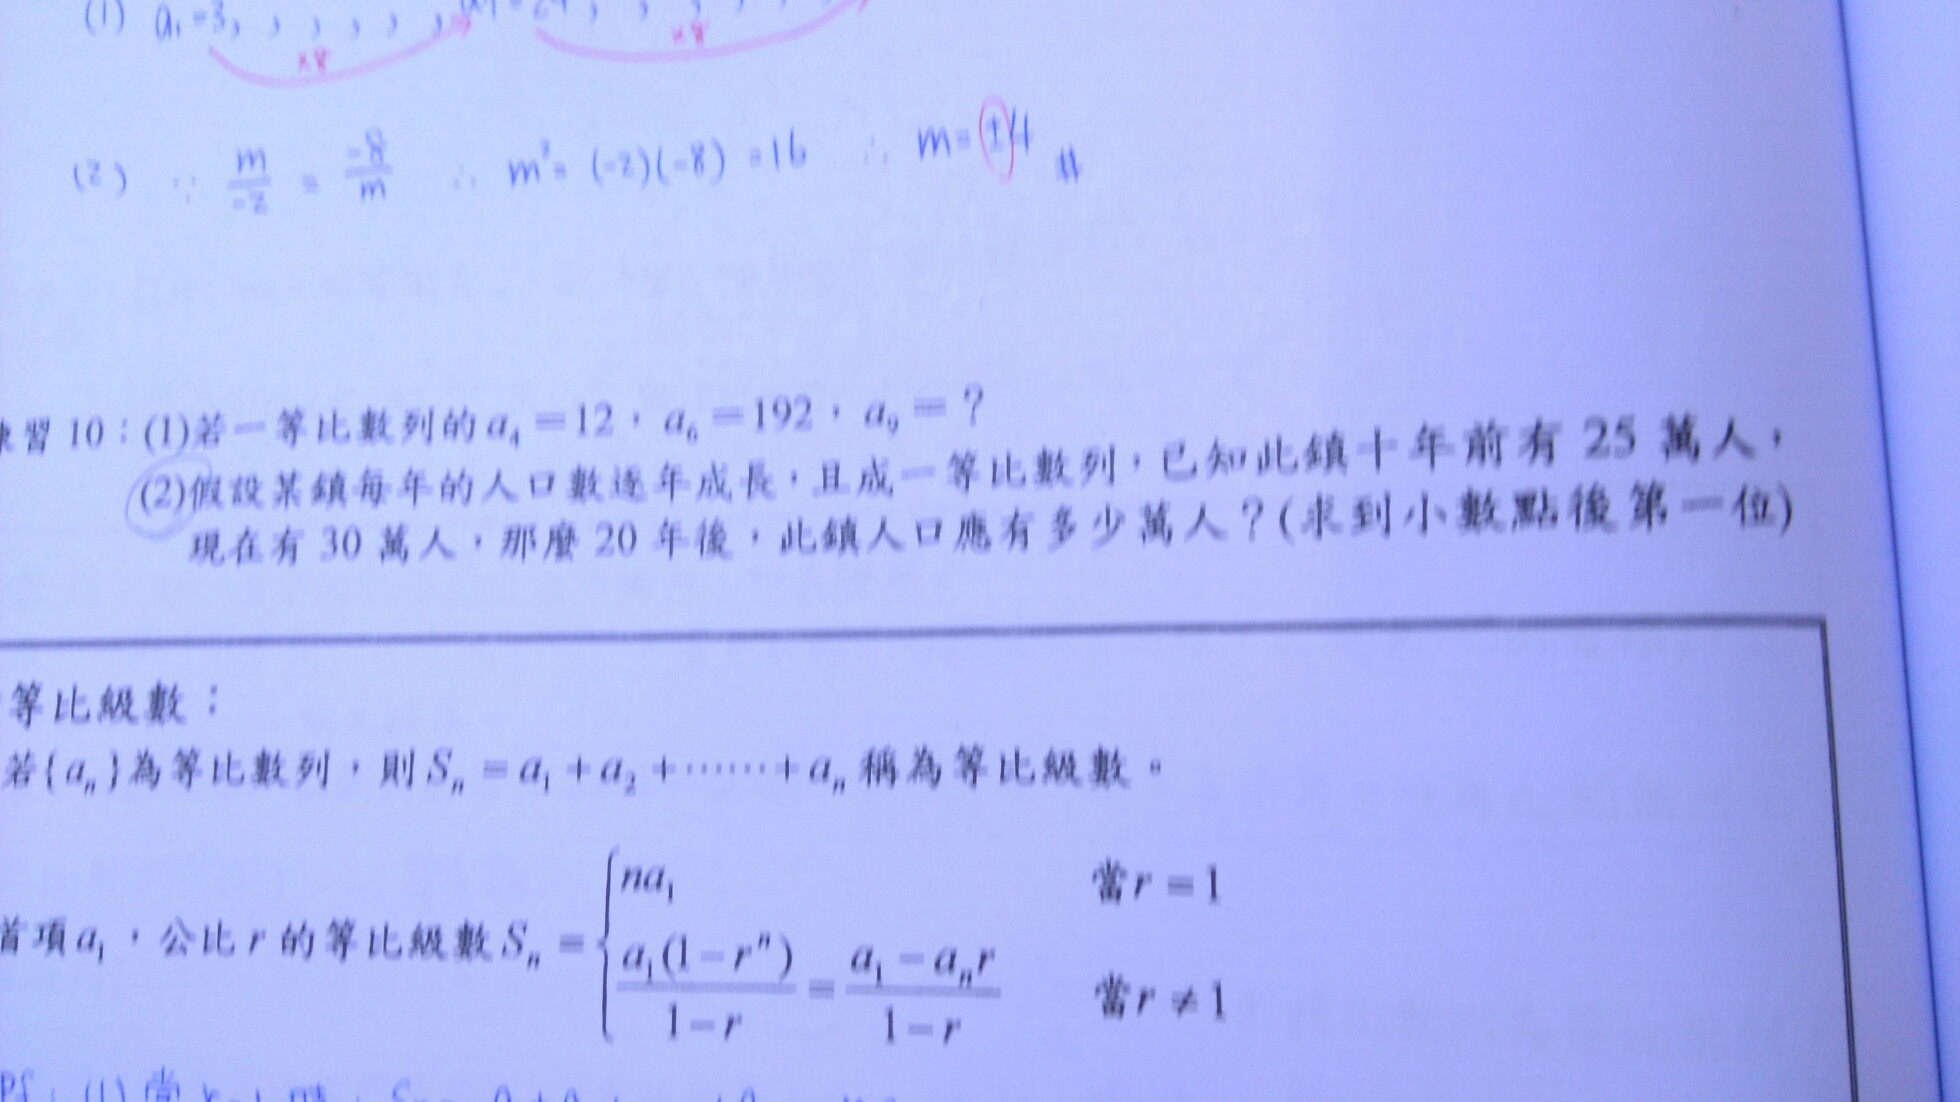 (1) a₁=3, , , , , ,
×8 ×8
(2) ∵ m/-2 = -8/m ∴ m²=(-2)(-8)=16 ∴ m=±4 #
習 10：(1)若一等比數列的 a₄＝12，a₆＝192，a₉＝？
(2)假設某鎮每年的人口數逐年成長，且成一等比數列，已知此鎮十年前有 25 萬人，
現在有 30 萬人，那麼 20 年後，此鎮人口應有多少萬人？(求到小數點後第一位)
等比級數：
若{aₙ}為等比數列，則 Sₙ＝a₁＋a₂＋……＋aₙ 稱為等比級數。
首項 a₁，公比 r 的等比級數 Sₙ＝{ na₁ 當 r＝1
a₁(1－rⁿ)/(1－r)＝(a₁－aₙr)/(1－r) 當 r≠1